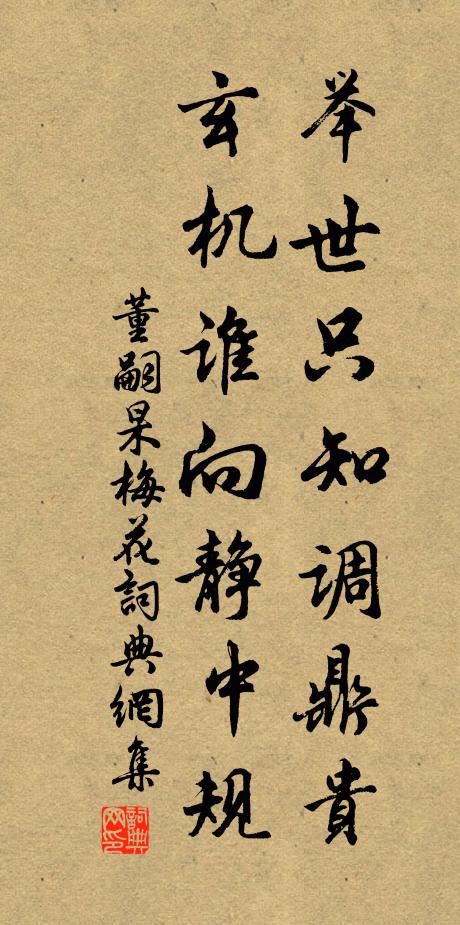 举世只知调鼎贵
玄机谁向静中规
董嗣杲梅花詞典網集
詞典网印